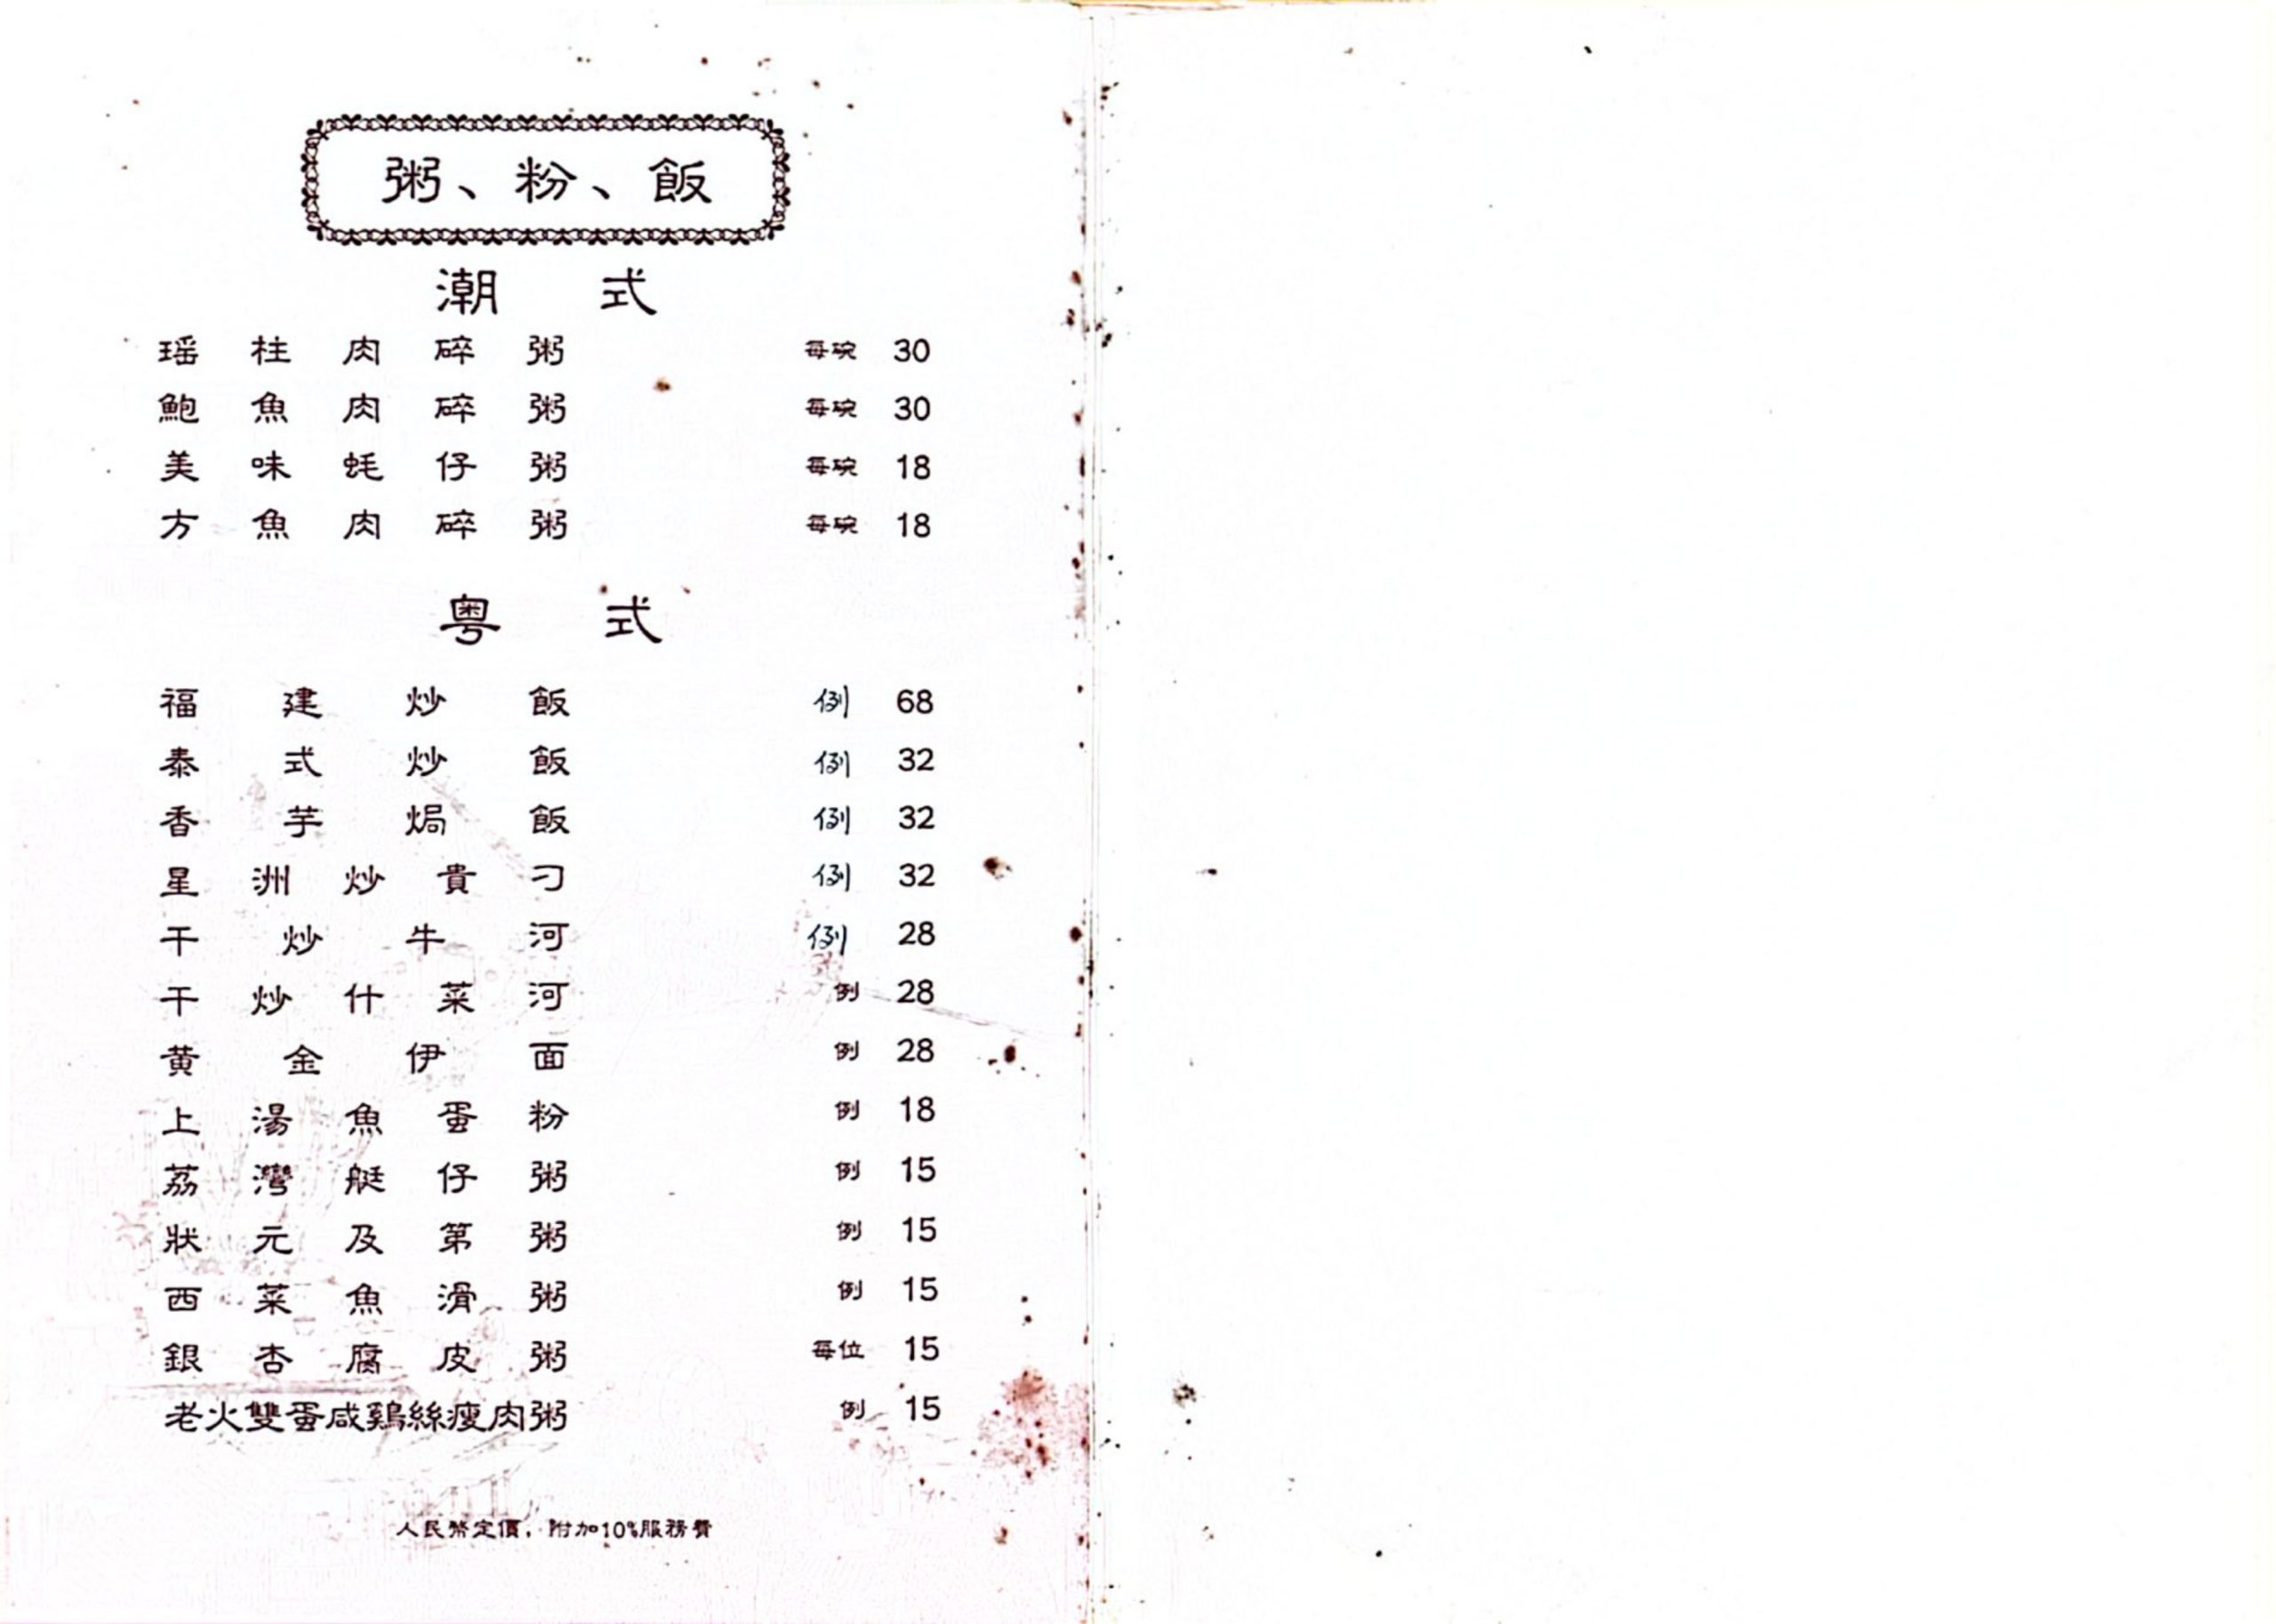 粥、粉、飯
潮式
瑶柱肉碎粥 每碗 30
鮑魚肉碎粥 每碗 30
美味蚝仔粥 每碗 18
方魚肉碎粥 每碗 18
粤式
福建炒飯 例 68
泰式炒飯 例 32
香芋焗飯 例 32
星洲炒貴刁 例 32
干炒牛河 例 28
干炒什菜河 例 28
黄金伊面 例 28
上湯魚蛋粉 例 18
荔灣艇仔粥 例 15
狀元及第粥 例 15
西菜魚滑粥 例 15
銀杏腐皮粥 每位 15
老火雙蛋咸鷄絲瘦肉粥 例 15
人民幣定價，附加10%服務費